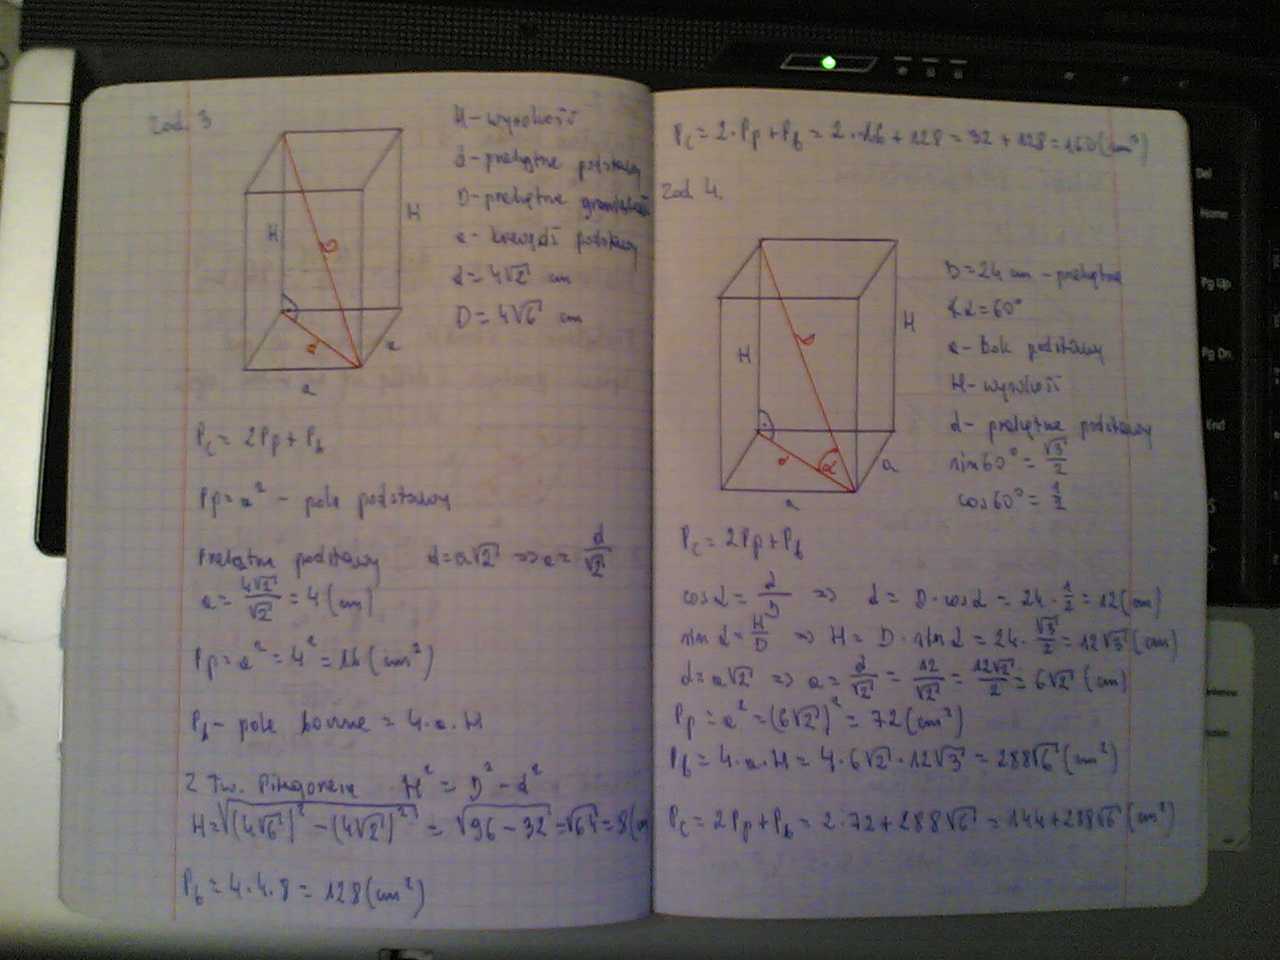 zad. 3
H - wysokość
d - przekątna podstawy
D - przekątna graniastosłupa
a - krawędź podstawy
d = 4√2 cm
D = 4√6 cm
H
D
H
d
a
a
Pc = 2Pp + Pb
Pp = a² - pole podstawy
Przekątna podstawy d = a√2 => a = d/√2
a = 4√2/√2 = 4 (cm)
Pp = a² = 4² = 16 (cm²)
Pb - pole boczne = 4·a·H
Z Tw. Pitagorasa H² = D² - d²
H = √((4√6)² - (4√2)²) = √(96 - 32) = √64 = 8 (cm
Pb = 4·4·8 = 128 (cm²)
Pc = 2·Pp + Pb = 2·16 + 128 = 32 + 128 = 160 (cm²)
zad 4.
D = 24 cm - przekątna
∢α = 60°
a - bok podstawy
H - wysokość
d - przekątna podstawy
sin60° = √3/2
cos60° = 1/2
H
D
H
d
α
a
a
Pc = 2Pp + Pb
cos α = d/D => d = D·cos α = 24·1/2 = 12 (cm)
sin α = H/D => H = D·sin α = 24·√3/2 = 12√3 (cm)
d = a√2 => a = d/√2 = 12/√2 = 12√2/2 = 6√2 (cm)
Pp = a² = (6√2)² = 72 (cm²)
Pb = 4·a·H = 4·6√2·12√3 = 288√6 (cm²)
Pc = 2Pp + Pb = 2·72 + 288√6 = 144 + 288√6 (cm²)
Del
Home
Pg Up
Pg Dn
End